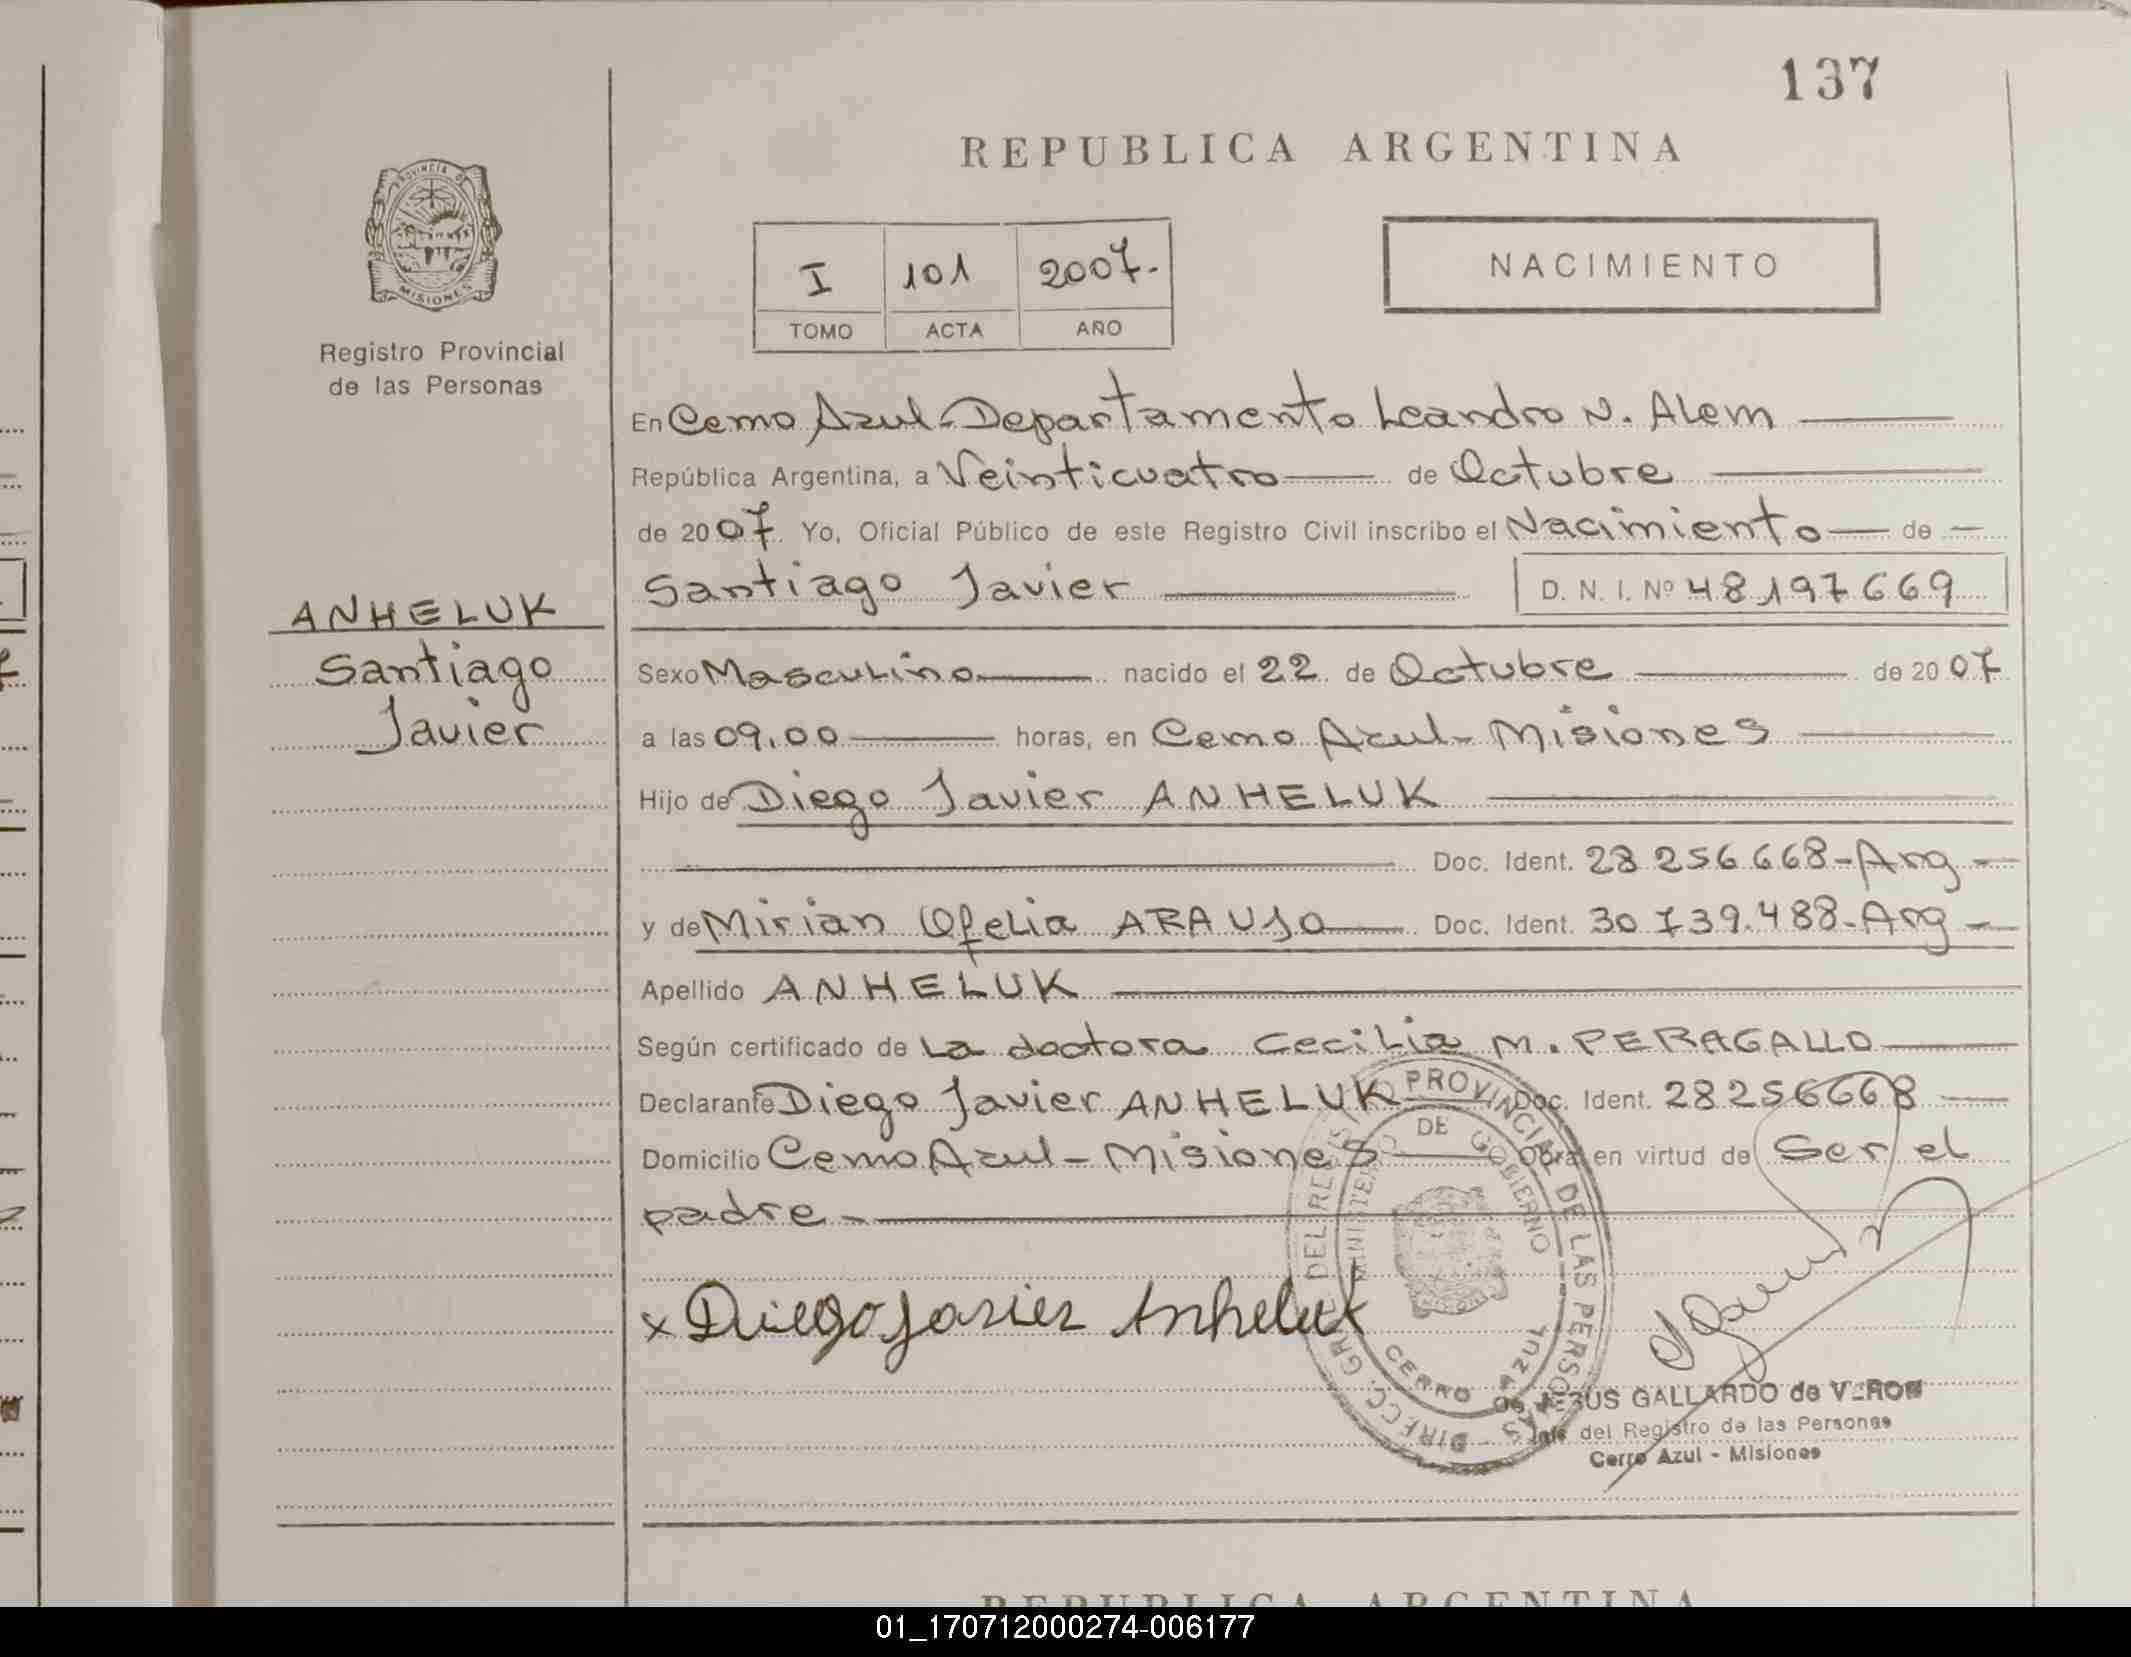 137
REPUBLICA ARGENTINA
PROVINCIA DE
MISIONES
Registro Provincial
de las Personas
NACIMIENTO
I 101 2007.
TOMO ACTA AÑO
En Cerro Azul-Departamento Leandro N. Alem
República Argentina, a Veinticuatro de Octubre
de 2007 Yo, Oficial Público de este Registro Civil inscribo el Nacimiento de
Santiago Javier D. N. I. Nº 48197669
ANHELUK
Santiago
Javier
Sexo Masculino nacido el 22 de Octubre de 2007
a las 09.00 horas, en Cerro Azul-Misiones
Hijo de Diego Javier ANHELUK
Doc. Ident. 28 256.668-Arg-
y de Mirian Ofelia ARAUJO Doc. Ident. 30 739.488-Arg-
Apellido ANHELUK
Según certificado de La doctora Cecilia M. PERAGALLO
Declarante Diego Javier ANHELUK Doc. Ident. 28256668
Domicilio Cerro Azul-Misiones Obra en virtud de Ser el
padre-
x Diego Javier Anheluk
DIRECC. GRAL DEL REGISTRO PROVINCIAL DE LAS PERSONAS
MINISTERIO DE GOBIERNO
CERRO AZUL
JESUS GALLARDO de VERON
Jefe del Registro de las Personas
Cerro Azul - Misiones
REPUBLICA ARGENTINA
01_170712000274-006177